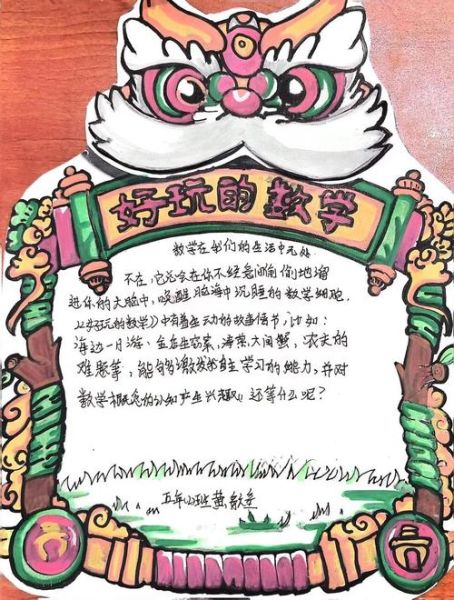 好玩的数学
数学在我们的生活中无处
不在,它总会在你不经意间悄悄地溜
进你的大脑中,唤醒脑海中沉睡的数学细胞,
《好玩的数学》中有着生动的故事情节,比如:
海边一日游、金店密案,海景大间谍,农夫的
难题等,能够激发自主学习的能力,并对
数学概念的认知产生兴趣。还等什么呢?
五年 班黄